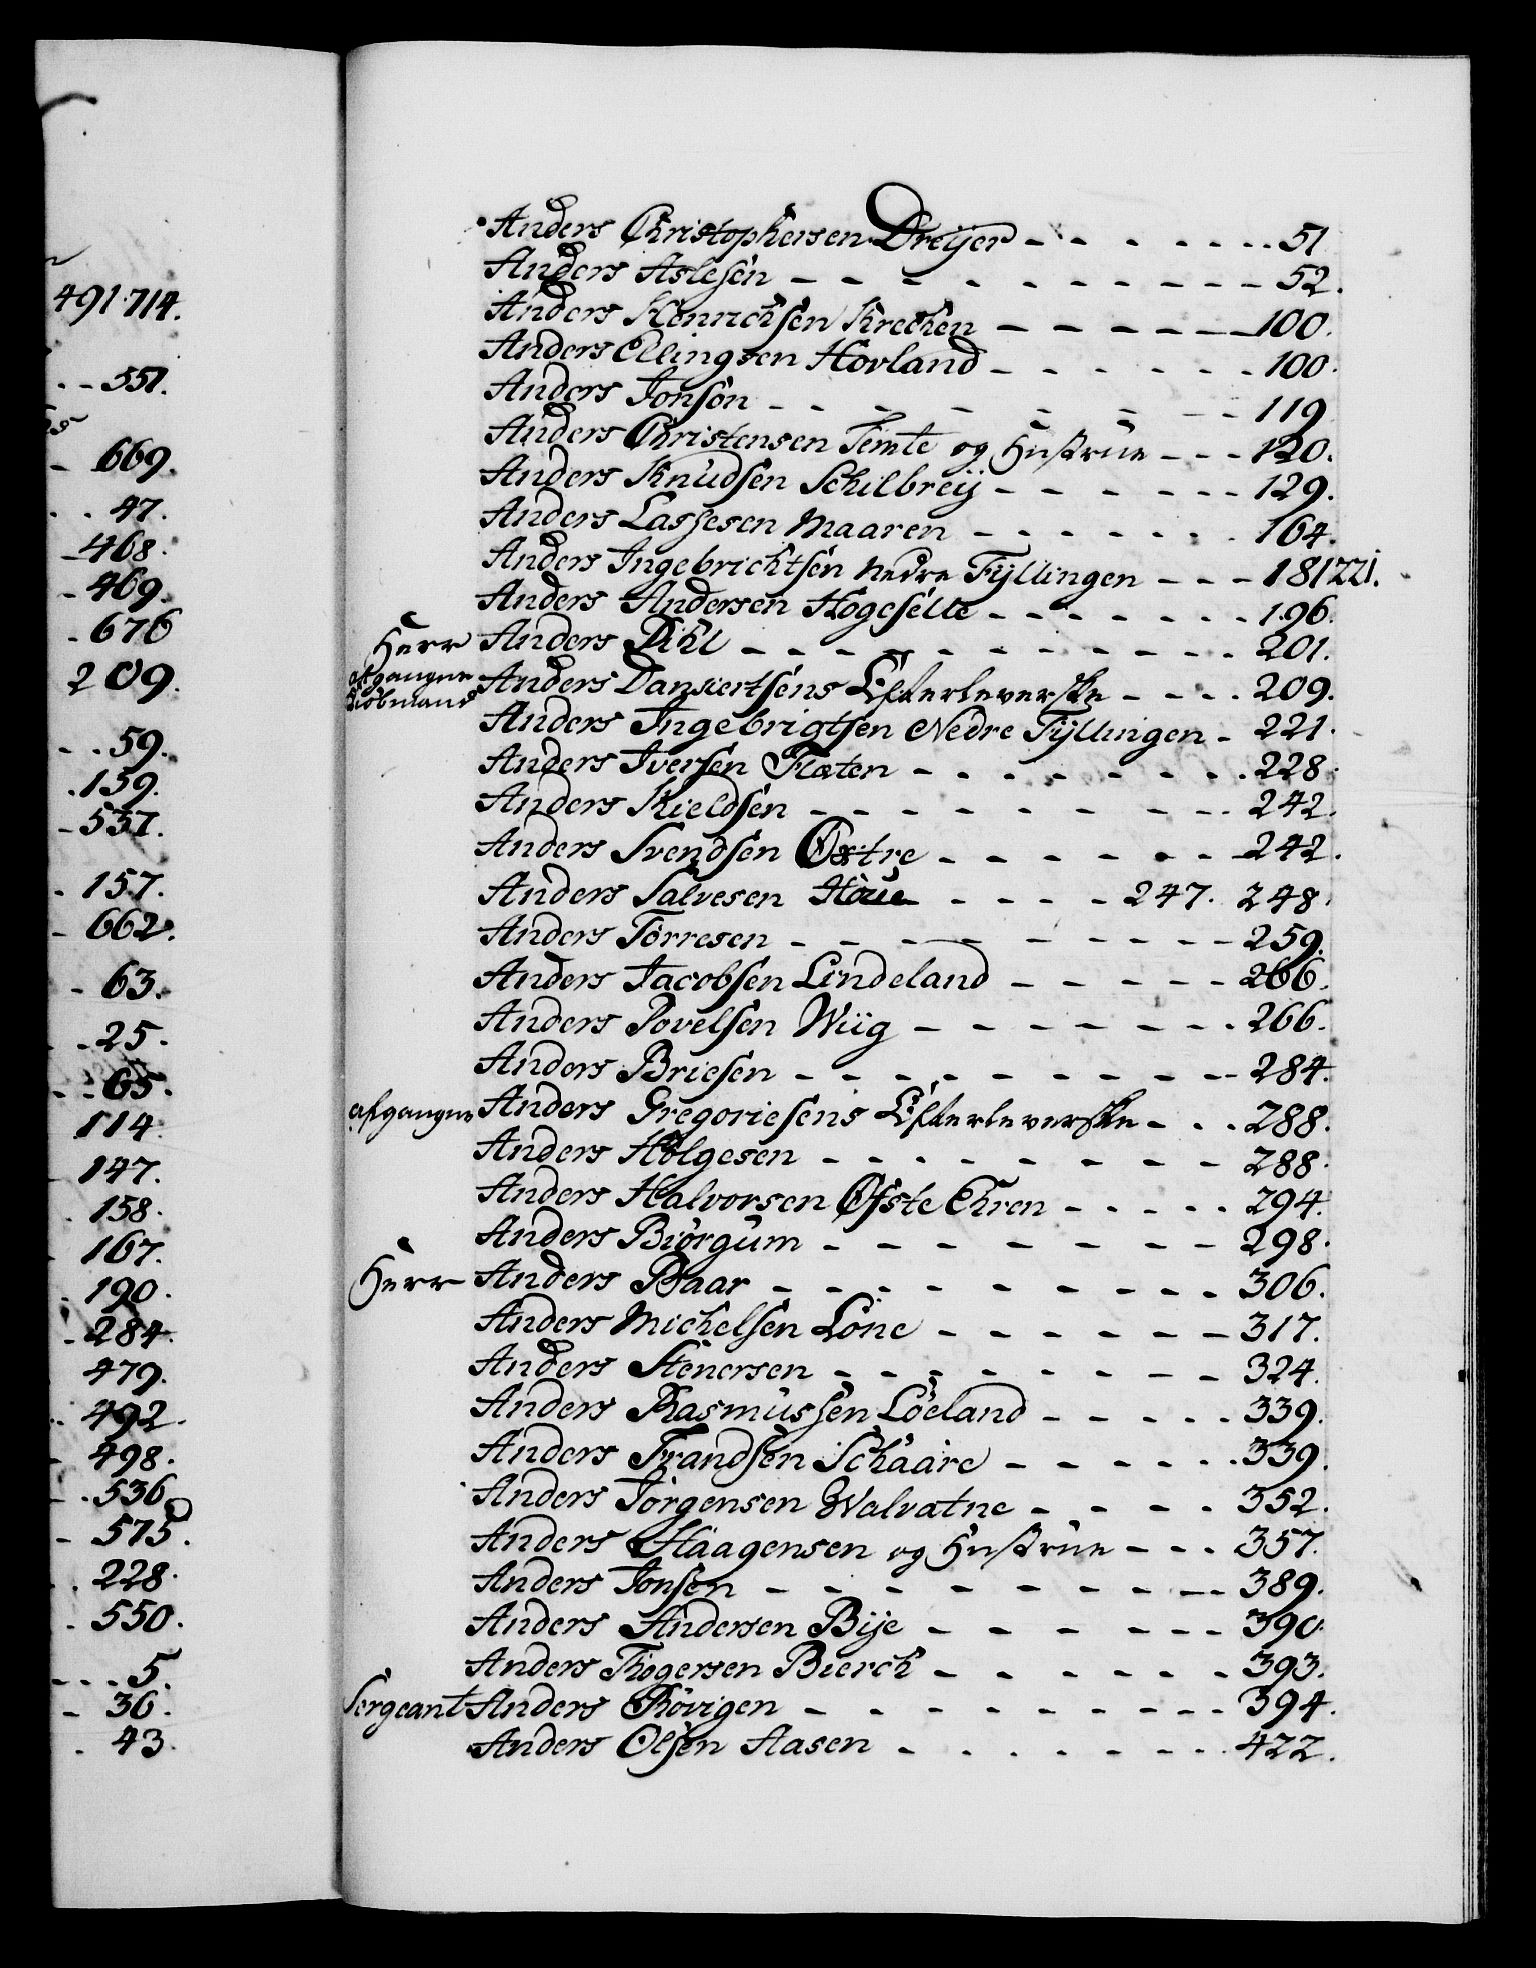 491. 714.
551.
669.
47.
468.
469.
676
209.
59.
159.
537.
157.
662.
63.
25.
65.
114.
147.
158.
167.
190.
284.
479.
492.
498.
536
575.
228.
550.
5.
36.
43.
Anders Christophersen Dreijer - - - - - - - 51
Anders Aslesen - - - - - - - - - - 52.
Anders Henrichsen Krechen - - - - - - 100.
Anders Ellingsen Hovland - - - - - - 100.
Anders Jonsøn - - - - - - - - - 119
Anders Christensen Temte og Hustrue - - - 120.
Anders Knudsen Schilbreij - - - - - - 129.
Anders Lassesen Maaren - - - - - - 164.
Anders Ingebrichtsen Nedre Fyllingen - - - 181 221.
Anders Andersen Hogeselle - - - - - - 196.
Herr Anders Dihl - - - - - - - - - - 201.
afgangne Kiøbmand Anders Danxiertsens Efterleverske - - - - 209.
Anders Ingebrigtsen Nedre Fyllingen - 221.
Anders Iversen Flaten - - - - - - - 228.
Anders Kieldsen - - - - - - - - - 242.
Anders Svendsen Østre - - - - - - - 242.
Anders Salvesen Houe - - - - - 247. 248.
Anders Torresen - - - - - - - - - 259.
Anders Jacobsen Lindeland - - - - - 266.
Anders Povelsen Wiig - - - - - - - 266.
Anders Briesen - - - - - - - - - - 284.
afgangne Anders Gregoriesens Efterleverske - - - 288.
Anders Holgesen - - - - - - - - - 288.
Anders Halvorsen Øfste Ehren - - - - - 294.
Anders Biørgum - - - - - - - - 298.
Herr Anders Baar - - - - - - - - - - 306.
Anders Michelsen Løne - - - - - - - 317.
Anders Stenersen - - - - - - - - - 324.
Anders Rasmussen Løeland - - - - - 339.
Anders Frandsen Schaare - - - - - - 339.
Anders Jørgensen Walvatne - - - - 352.
Anders Haagensen og Hustrue - - - 357.
Anders Jonsen - - - - - - - - - 389.
Anders Andersen Bije - - - - - - 390.
Anders Thogersen Bierch - - - - - - - 393.
Sergeant Anders Røvigen - - - - - - - - - 394.
Anders Olsen Aasen - - - - - - - - 422.